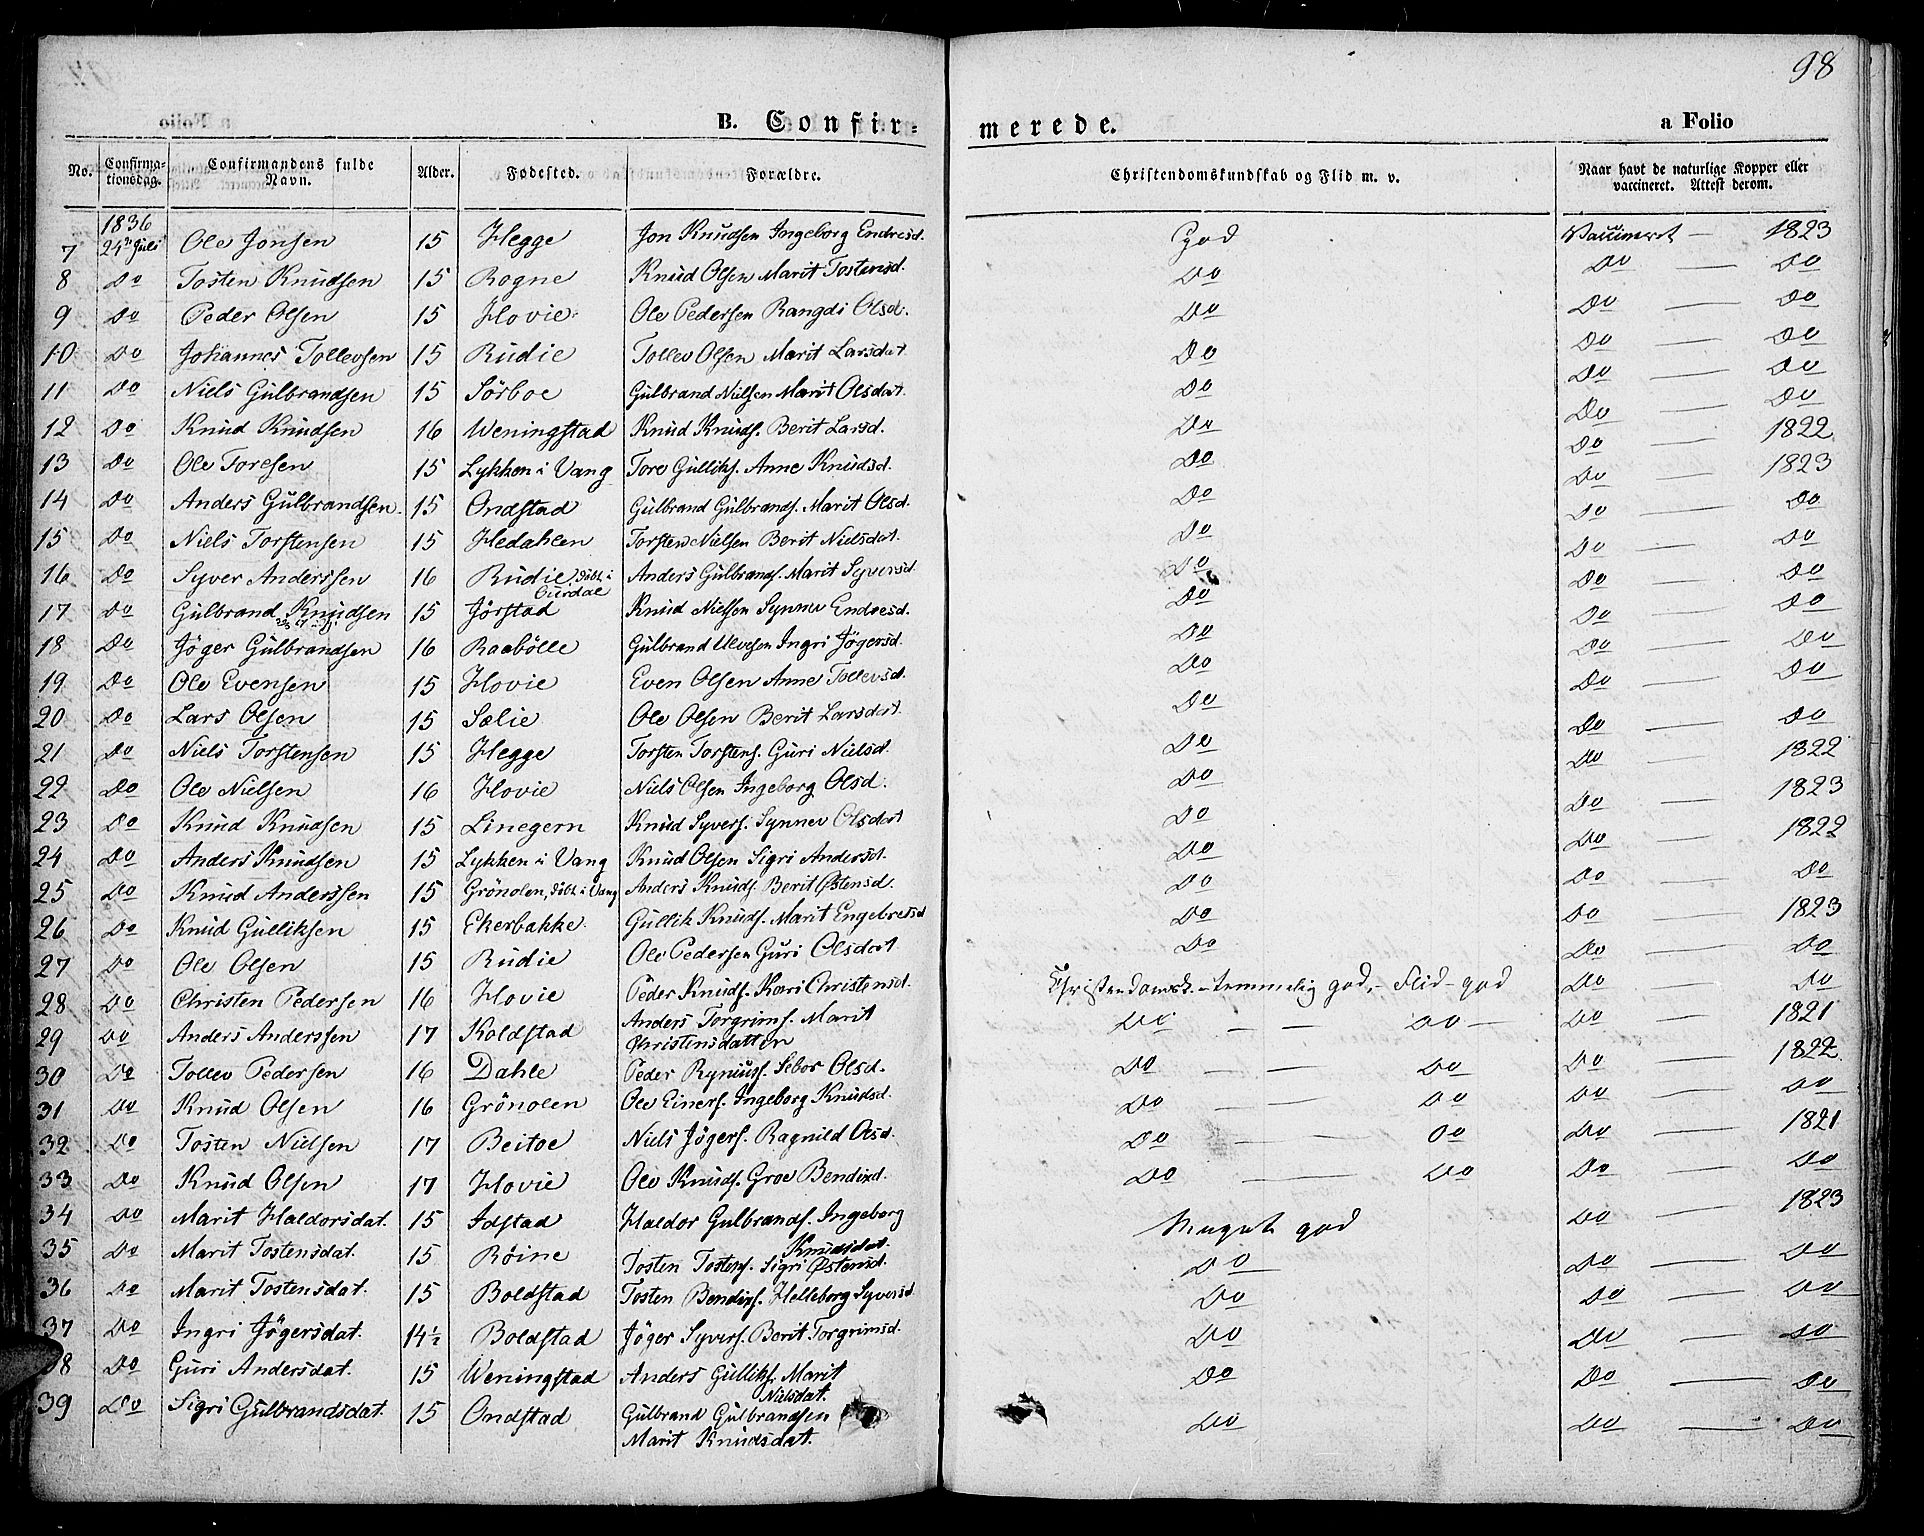 98
B. Confir- merede. a Folio
No. Confirma-tionsdag. Confirmandens fulde Navn. Alder. Fødested. Forældre. Christendomskundskab og Flid m. v. Naar havt de naturlige Kopper eller vaccineret. Attest derom.
1836
7 24de Juli Ole Jonsen 15 Hegge Jon Knudsen Ingeborg Endresd. God Vaccineret — 1823
8 Do Tosten Knudsen 15 Rogne Knud Olsen Marit Tostensd. Do Do — Do
9 Do Peder Olsen 15 Hovie Ole Pedersen Rangdi Olsd. Do Do — Do
10 Do Johannes Tollevsen 15 Rudie Tollev Olsen Marit Larsdat. Do Do — Do
11 Do Niels Gulbrandsen 15 Sörboe Gulbrand Nielsen Marit Olsdat. Do Do — Do
12 Do Knud Knudsen 16 Weningstad Knud Knuds. Berit Larsd. Do Do — Do
13 Do Ole Toresen 15 Lykken i Vang Tore Gulliks. Anne Knudsd. Do Do — 1822
14 Do Anders Gulbrandsen. 15 Ondstad Gulbrand Gulbrands. Marit Olsd. Do Do — 1823
15 Do Niels Torstensen 15 Hedahlen Torsten Nielsen Berit Nielsdat. Do Do — Do
16 Do Syver Anderssen 16 Rudie, döbt i Aurdal Anders Gulbrands. Marit Syversd. Do Do — Do
17 Do Gulbrand Knudsen 15 Jörstad Knud Nielsen Synnev Endresd. Do Do — Do
18 Do Jöger Gulbrandsen 16 Raabölle Gulbrand Ulvesen Ingri Jögersd. Do Do — Do
19 Do Ole Evensen 15 Hovie Even Olsen Anne Tollevsd. Do Do — Do
20 Do Lars Olsen 15 Sælie Ole Olsen Berit Larsdat. Do Do — Do
21 Do Niels Torstensen 15 Hegge Torsten Torstens. Guri Nielsd. Do Do — Do
22 Do Ole Nielsen 16 Hovie Niels Olsen Ingeborg Olsd. Do Do — 1822
23 Do Knud Knudsen 15 Linegern Knud Syvers. Synnev Olsdat Do Do — 1823
24 Do Anders Knudsen 15 Lykken i Vang Knud Olsen Sigri Andersd. Do Do — 1822
25 Do Knud Anderssen 15 Grönolen, döbt i Vang Anders Knuds. Berit Østensd. Do Do — Do
26 Do Knud Gulliksen 15 Ekerbakke Gullik Knuds. Marit Engebretsd Do Do — 1823
27 Do Ole Olsen 15 Rudie Ole Pedersen Guri Olsdat. Do Do — Do
28 Do Christen Pedersen 16 Hovie Peder Knuds. Kari Christensd. Christendomsk. temmelig god, Flid god Do — Do
29 Do Anders Anderssen 17 Koldstad Anders Torgrims. Marit Christensdatten Do — — Do — Do — 1821
30 Do Tollev Pedersen 16 Dahle Peder Rynius. Sebor Olsd. Do — — Do Do — 1822
31 Do Knud Olsen 16 Grönolen Ole Einers. Ingeborg Knudsd. Do — — Do Do — Do
32 Do Tosten Nielsen 17 Beitoe Niels Jögers. Ragnild Olsd. Do — — Do Do — 1821
33 Do Knud Olsen 17 Hovie Ole Knuds. Groe Bendixd. Do — Do Do — Do
34 Do Marit Haldorsdat. 15 Idstad Haldor Gulbrands. Ingeborg Knudsdat. Meget god Do — 1823
35 Do Marit Tostensdat. 15 Röine Tosten Tostens. Sigri Østensd. Do Do — Do
36 Do Marit Tostensdat. 15 Boldstad Tosten Bendixs. Helleborg Syversd. Do Do — Do
37 Do Ingri Jögersdat. 14½ Boldstad Jöger Syvers. Berit Torgrimsd. Do Do — Do
38 Do Guri Andersdat. 15 Weningstad Anders Gulliks. Marit Nielsdat. Do Do — Do
39 Do Sigri Gulbrandsdat. 15 Ondstad Gulbrand Gulbrandsen Marit Knudsdat. Do Do — Do